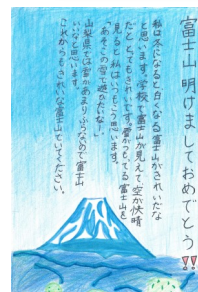 富士山明けましておめでとう!!
私は冬になると白くなる富士山がきれいだな
と思います。学校で富士山が見えて、空が快晴
だととってもきれいです。雪がつもってる富士山を
見ると私はいつもこう思います。
「あそこの雪で遊びたいな～」
山梨県では雪があまりふらないので富士山
いいなと思います。
これからもきれいな富士山でいてください。